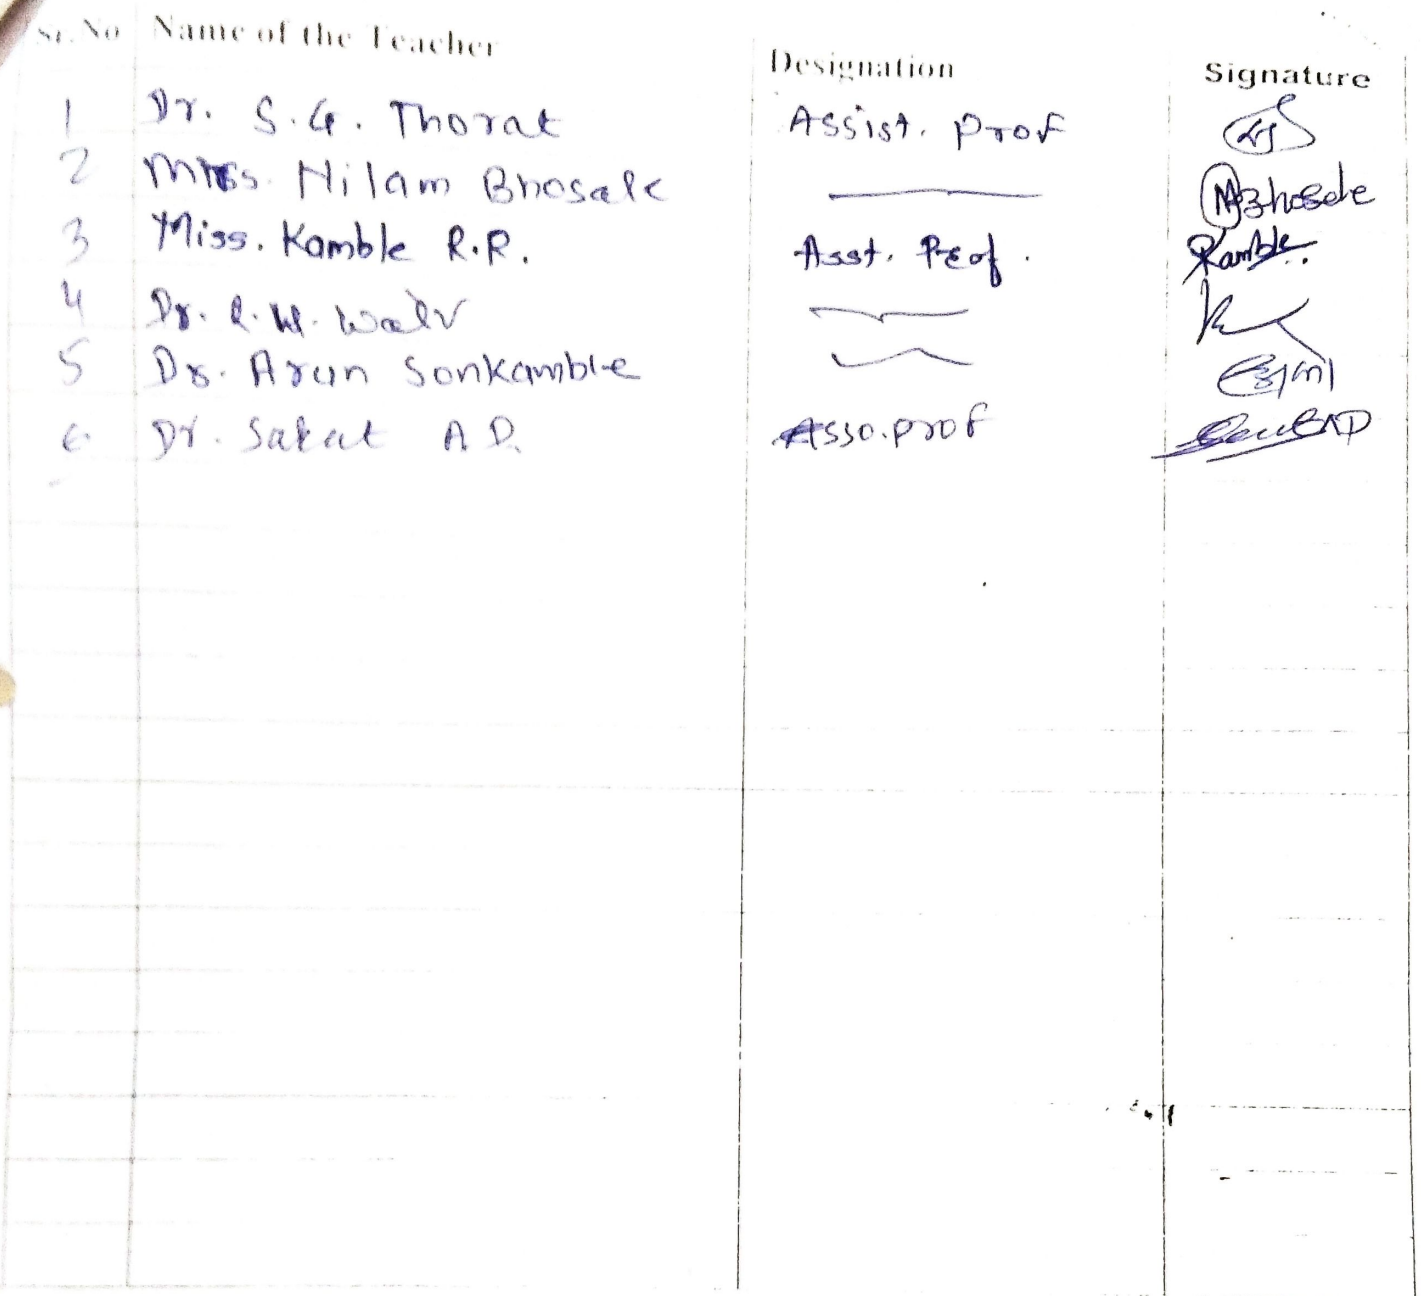 Sr. No Name of the Teacher Designation Signature
1 Dr. S. G. Thorat Assist. Prof
2 Miss. Nilam Bhosale Bhosale
3 Miss. Kamble R.R. Asst. Prof. Kamble
4 Dr. R. W.
5 Dr. Arun Sonkamble
6 Dr. Sakat A D. Asso.prof